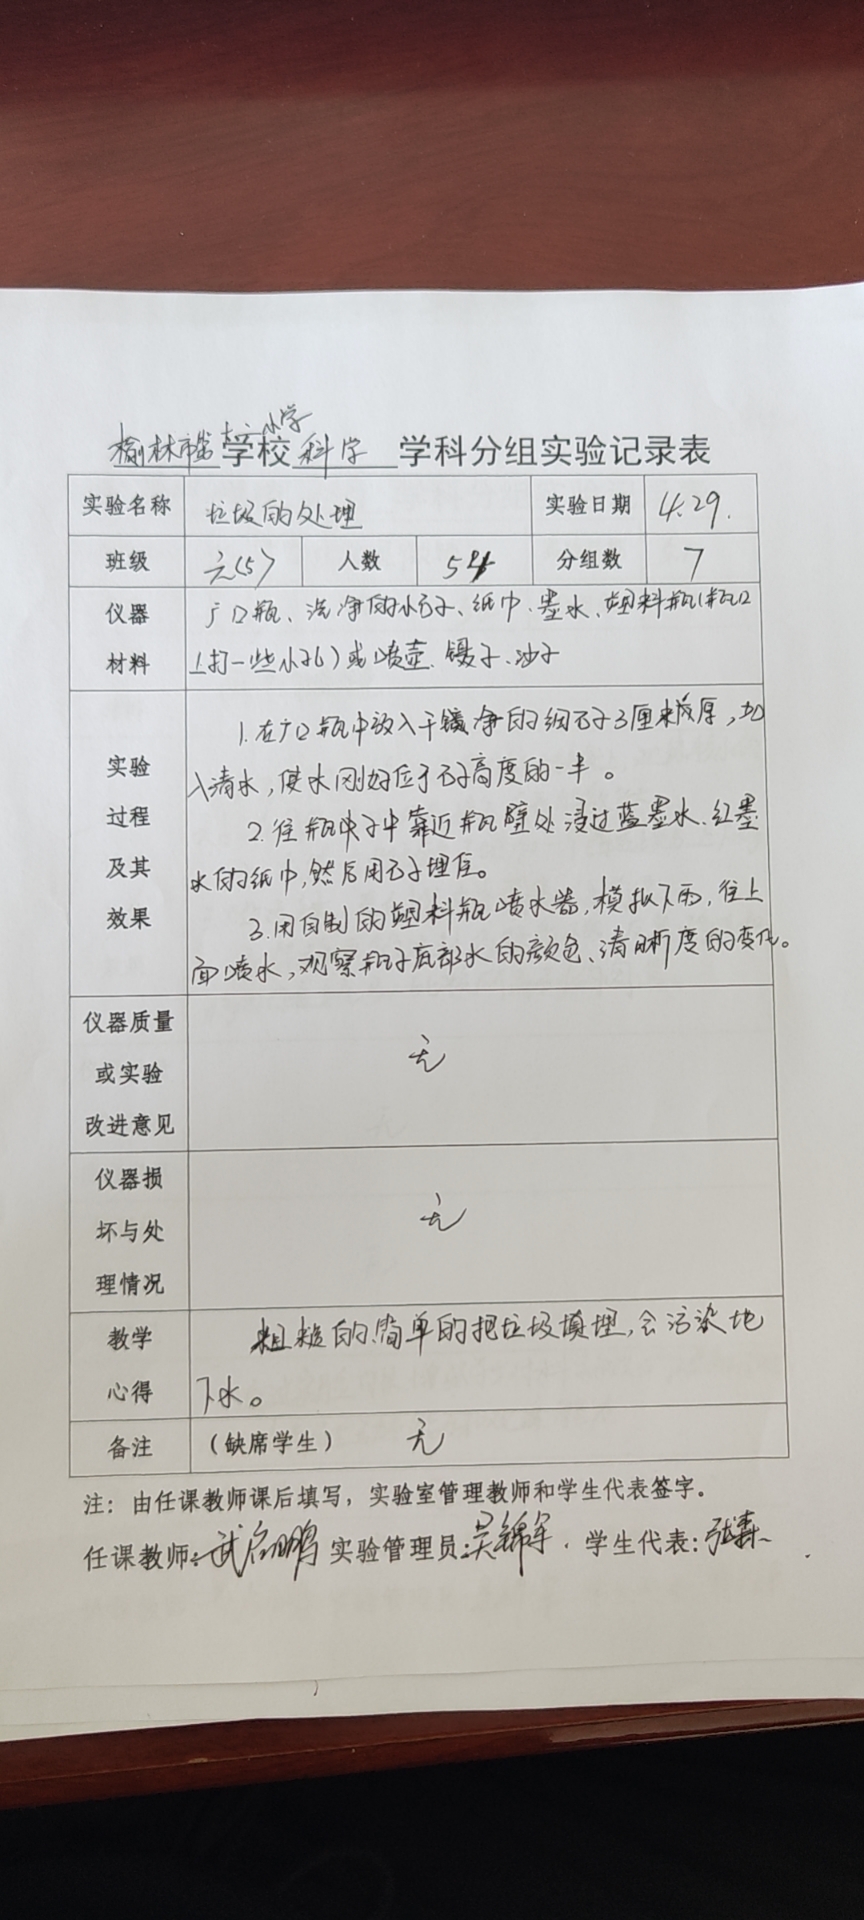 小学
榆林市第 学校 科学 学科分组实验记录表
实验名称 垃圾的处理 实验日期 4.29.
班级 六(5) 人数 54 分组数 7
仪器材料 广口瓶、洗净的小石子、纸巾、墨水、塑料瓶(瓶口
上打一些小孔)或喷壶、镊子、沙子
实验过程及其效果
1.在广口瓶中放入干净的细石子3厘米厚,加
入清水,使水刚好位于石子高度的一半。
2.往瓶子中靠近瓶壁处浸过蓝墨水、红墨
水的纸巾,然后用石子埋住。
3.用自制的塑料瓶喷水器,模拟下雨,往上
面喷水,观察瓶子底部水的颜色、清晰度的变化。
仪器质量或实验改进意见 无
仪器损坏与处理情况 无
教学心得 粗糙的简单的把垃圾填埋,会污染地
下水。
备注 (缺席学生) 无
注:由任课教师课后填写,实验室管理教师和学生代表签字。
任课教师: 实验管理员:吴锦军. 学生代表:张森